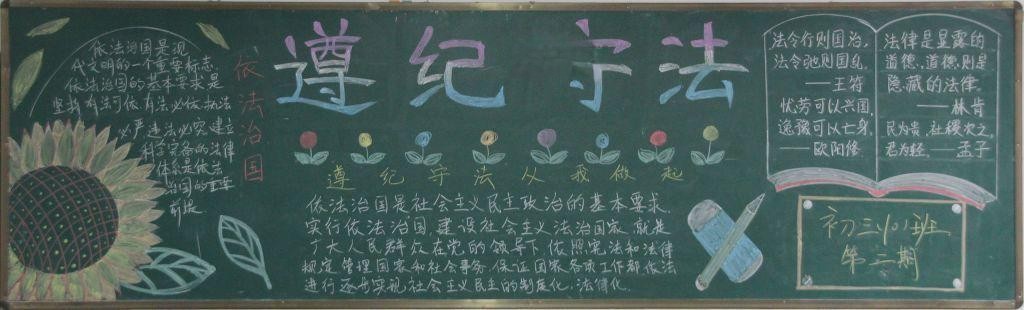 遵纪守法
依法治国是现
代文明的一个重要标志,
依法治国的基本要求是
坚持有法可依有法必依,执法
必严违法必究建立
科学完备的法律
体系是依法
治国的重要
前提
依法治国
遵纪守法从我做起
依法治国是社会主义民主政治的基本要求,
实行依法治国,建设社会主义法治国家,就是
广大人民群众在党的领导下,依照宪法和法律
规定管理国家和社会事务,保证国家各项工作都依法
进行逐步实现社会主义民主的制度化,法律化。
法令行则国治,
法令弛则国乱。
——王符
忧劳可以兴国,
逸豫可以亡身。
——欧阳修
法律是显露的
道德、道德则是
隐藏的法律。
——林肯
民为贵,社稷次之,
君为轻。——孟子
初三(10)班
第三期